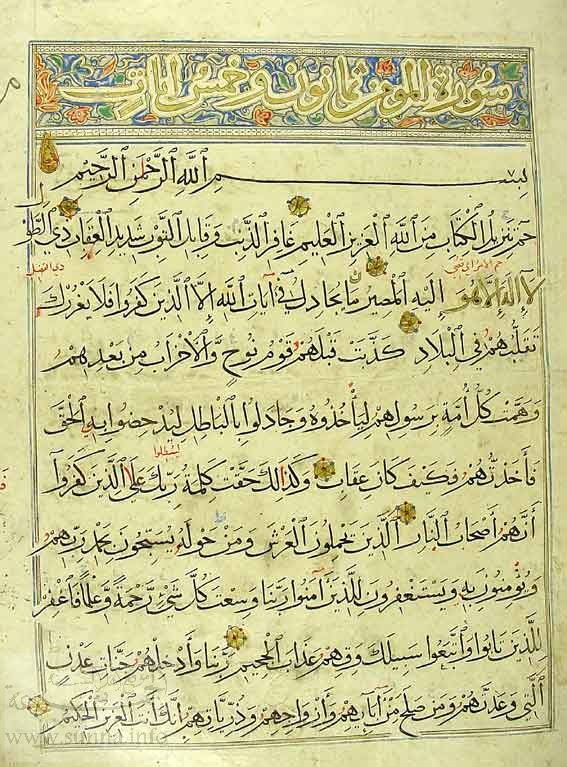 سورة المومن ثمانون وخمس آيات
بسم الله الرحمن الرحيم
حم تنزيل الكتاب من الله العزيز العليم غافر الذنب وقابل التوب شديد العقاب ذي الطو
ل
ذي الفضل
لا إله إلا هو إليه المصير ما يجادل في آيات الله إلا الذين كفروا فلا يغررك
تقلبهم في البلاد كذبت قبلهم قوم نوح والأحزاب من بعدهم
وهمت كل أمة برسولهم ليأخذوه وجادلوا بالباطل ليدحضوا به الحق
ليبطلوا
فأخذتهم فكيف كان عقاب وكذلك حقت كلمة ربك على الذين كفروا
أنهم أصحاب النار الذين يحملون العرش ومن حوله يسبحون بحمد ربهم
ويؤمنون به ويستغفرون للذين آمنوا ربنا وسعت كل شيء رحمة وعلما فاغفر
للذين تابوا واتبعوا سبيلك وقهم عذاب الجحيم ربنا وأدخلهم جنات عدن
التي وعدتهم ومن صلح من آبائهم وأزواجهم وذرياتهم إنك أنت العزيز الحكيم
www.sunna.info